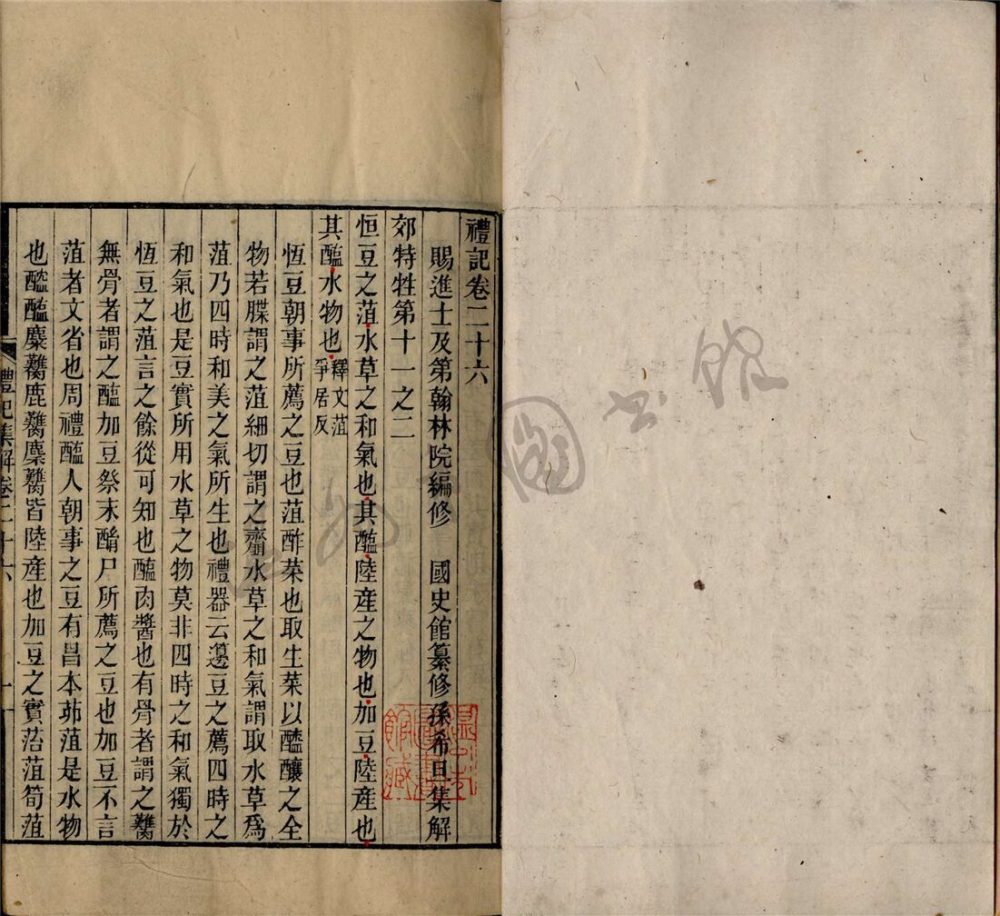 禮記卷二十六
賜進士及第翰林院編修 國史館纂修孫希旦集解
郊特牲第十一之二
恒豆之菹水草之和氣也其醢陸產之物也加豆陸產也
其醢水物也釋文菹
爭居反
恆豆朝事所薦之豆也菹酢菜也取生菜以醯釀之全
物若䐑謂之菹細切謂之齏水草之和氣謂取水草爲
菹乃四時和美之氣所生也禮器云籩豆之薦四時之
和氣也是豆實所用水草之物莫非四時之和氣獨於
恆豆之菹言之餘從可知也醢肉醬也有骨者謂之臡
無骨者謂之醢加豆祭末酳尸所薦之豆也加豆不言
菹者文省也周禮醢人朝事之豆有昌本茆菹是水物
也醓醢麋臡鹿臡麇臡皆陸產也加豆之實菭菹筍菹
禮記集解卷二十六
圖書館